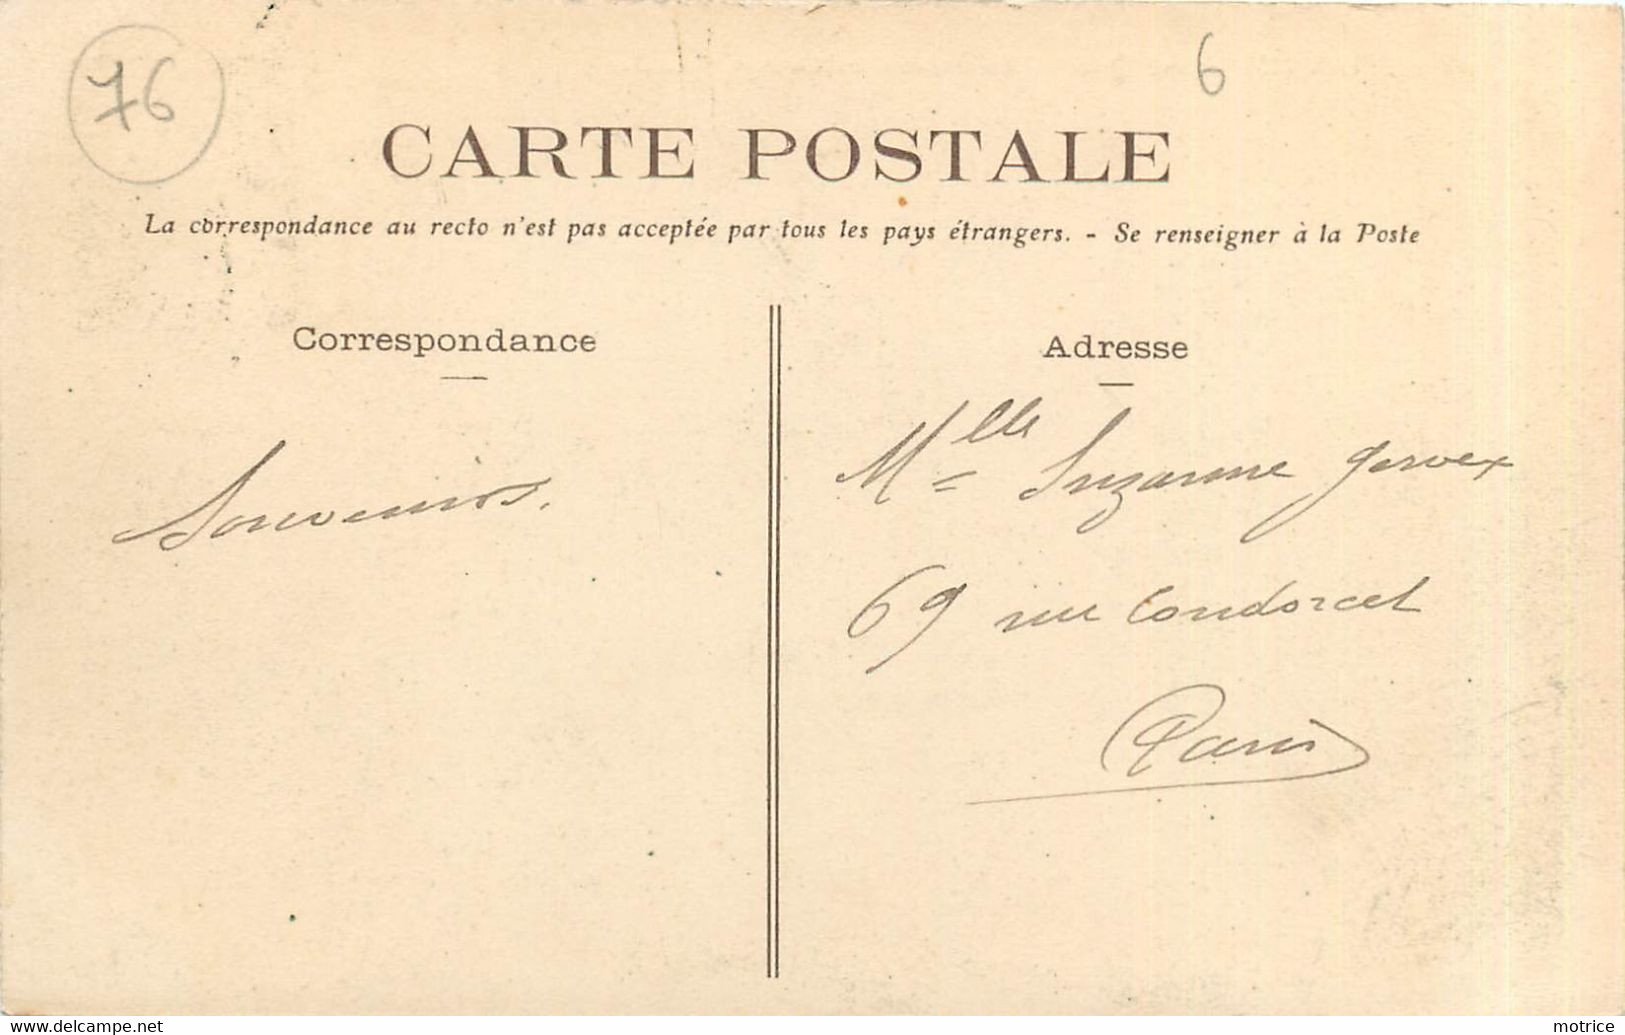 76
6
CARTE POSTALE
La correspondance au recto n'est pas acceptée par tous les pays étrangers. - Se renseigner à la Poste
Correspondance
Souvenirs.
Adresse
Mlle Suzanne Gervex
69 rue Condorcet
Paris
www.delcampe.net
motrice